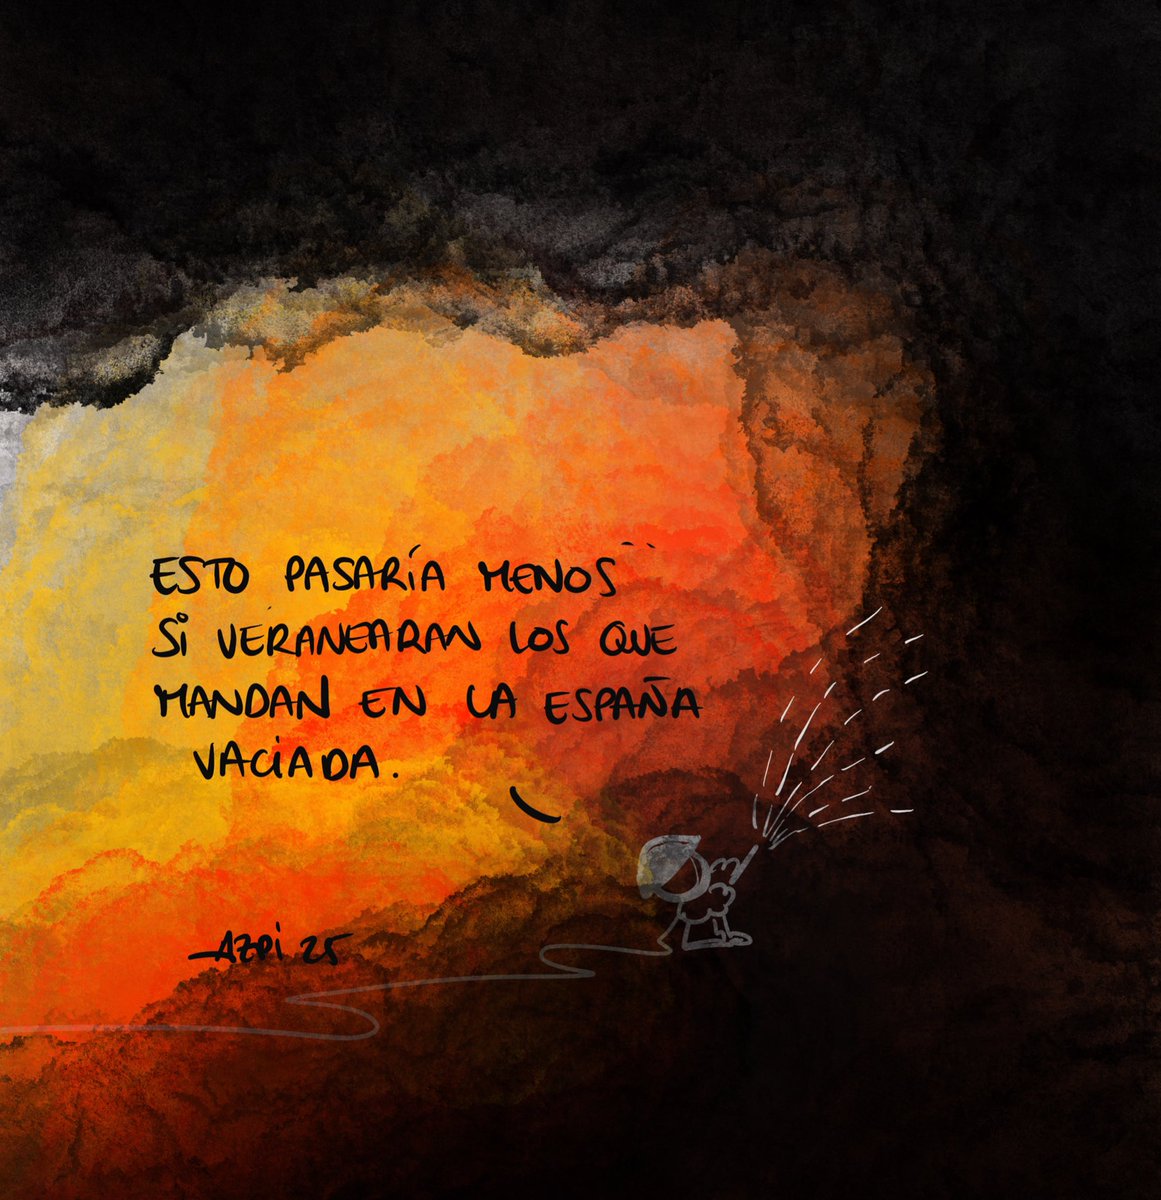 ESTO PASARÍA MENOS
SI VERANEARAN LOS QUE
MANDAN EN LA ESPAÑA
VACIADA.
AZPI 25